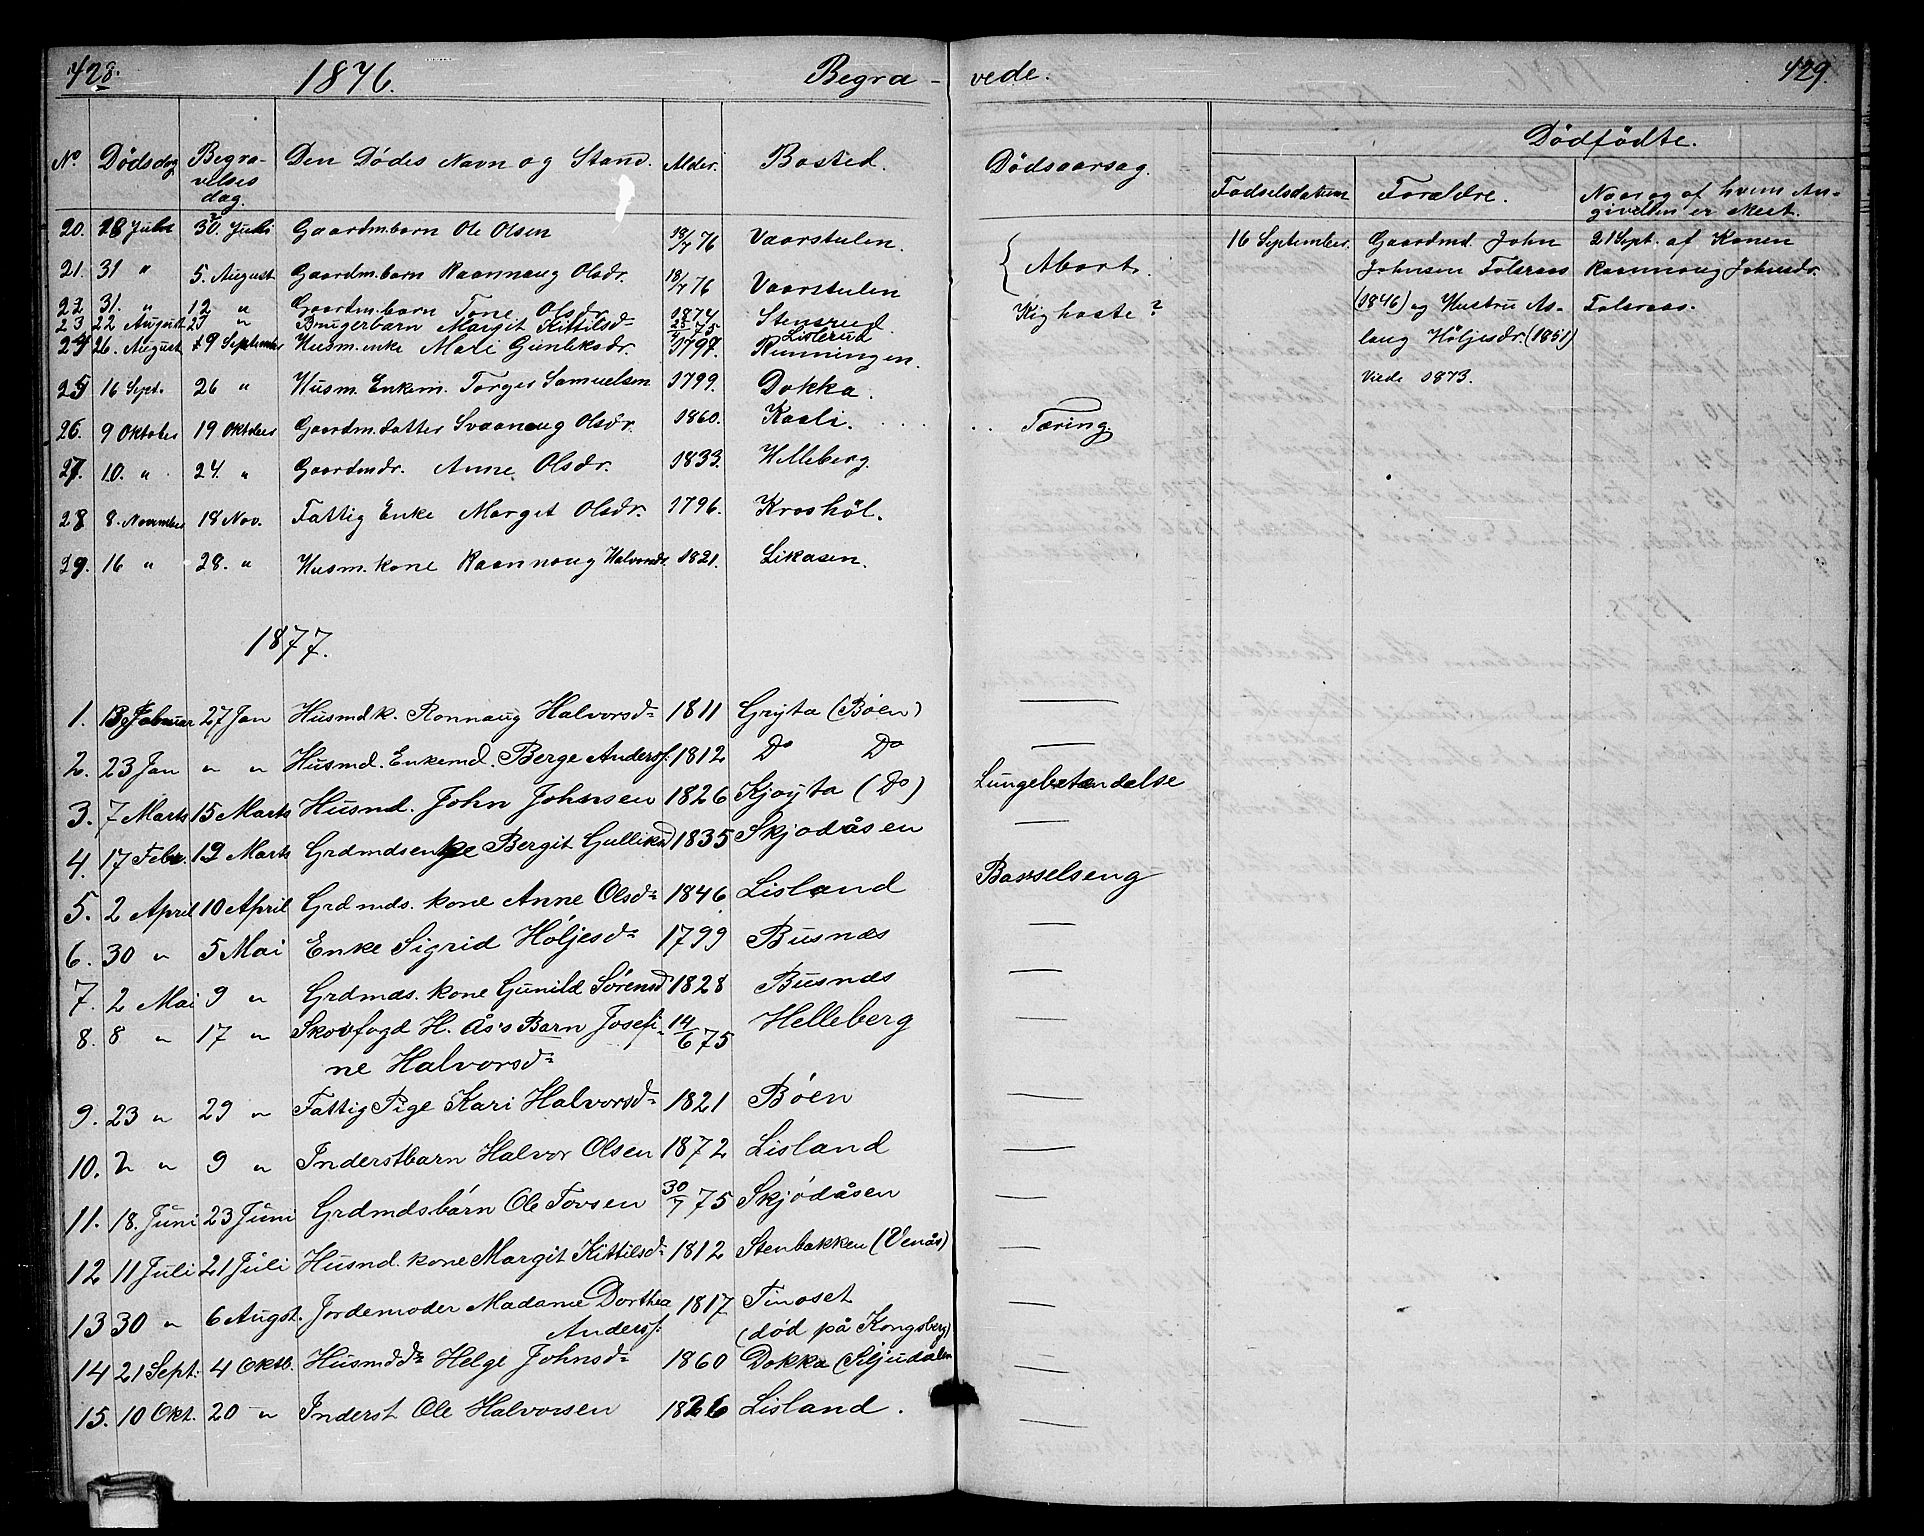 428. 1876. Begra- vede. 429.
No Dödsdag Begra- velses dag. Den Dödes Navn og Stand. Alder. Bosted. Dödsaarsag. Dödfödte.
Födselsdatum Forældre. Naar og af hvem An- givelsen er skeet.
20. 18 Juli 30. Juli Gaardm.barn Ole Olsen 18/7 76 Vaarstulen.
21. 31 " 5. August Gaardm.barn Raannaug Olsdr. 18/7 76 Vaarstulen } Abort.
22 31. " 12 " Gaardm.barn Tone Olsdr. 1874 Stensrud. Kighoste?
23 22 August 27 " Brugerbarn Margit Kittilsd= 75 Listerud
24 26. August 9 September Husm.enke Mari Gunleksdr. 1797. Nunningen.
25 16 Sept. 26 " Husm. Enkem. Torger Samuelsen 1799. Dokka.
26. 9 Oktober 19 Oktober Gaardm.datter Svaanaug Olsdr. 1860. Kasli. Tæring.
27. 10. " 24. " Gaardmdr. Anne Olsdr. 1833. Helleberg.
28 8. November 18 Nov. Fattig Enke Margit Olsdr. 1796. Kroshöl.
29. 16 " 28. " Husm.kone Raannaug Halvorsdr. 1821. Likasen.
16 September. Gaardmd. John Johnsen Folsraas (1846) og Hustru As- laug Höljesdr. (1851) Viede 1873.
21 Sept. af Konen Raannaug Johnsdr. Folsraas.
1877.
1. 13 Januar 27 Jan Husmdk. Ronnaug Halvorsd= 1811 Gryta (Bøen) —
2. 23 Jan " " Husmd. Enkemd. Berge Anderss: 1812 Do Do —
3. 7 Marts 15 Marts Husmd. John Johnsen 1826 Kjøyta (Do) Lungebetændelse
4. 17 Febr. 19 Marts Grdmdsenke Bergit Gulliksd 1835 Skjodåsen —
5. 2 April 10 April Grdmds. kone Anne Olsd= 1846 Lisland Barselseng
6. 30 " 5 Mai Enke Sigrid Høljesd= 1799 Busnæs —
7. 2 Mai 9 " Grdmds. kone Gunild Sørensd 1828 Busnæs —
8. 8 " 17 " Skovfogd H. Ås's Barn Josefi- 14/6 75 Helleberg —
ne Halvorsd=
9. 23 " 29 " Fattig Pige Kari Halvorsd= 1821 Bøen —
10. 2 " 9 " Inderstbarn Halvor Olsen 1872 Lisland —
11. 18. Juni 23 Juni Grdmdsbarn Ole Tovsen 30/7 75 Skjødåsen —
12 11 Juli 21 Juli Husmd. kone Margit Kittilsd= 1812 Stenbakken (Venås) —
13 30 " 6 Augst. Jordemoder Madame Dorthea 1817 Tinoset —
Anderss: (død på Kongsberg)
14 21 Sept: 4 Oktb. Husmdd= Helge Johnsd= 1860 Dokka (Sljudalen —
15. 10 Okt. 20 " Inderst Ole Halvorsen 1826 Lisland. —